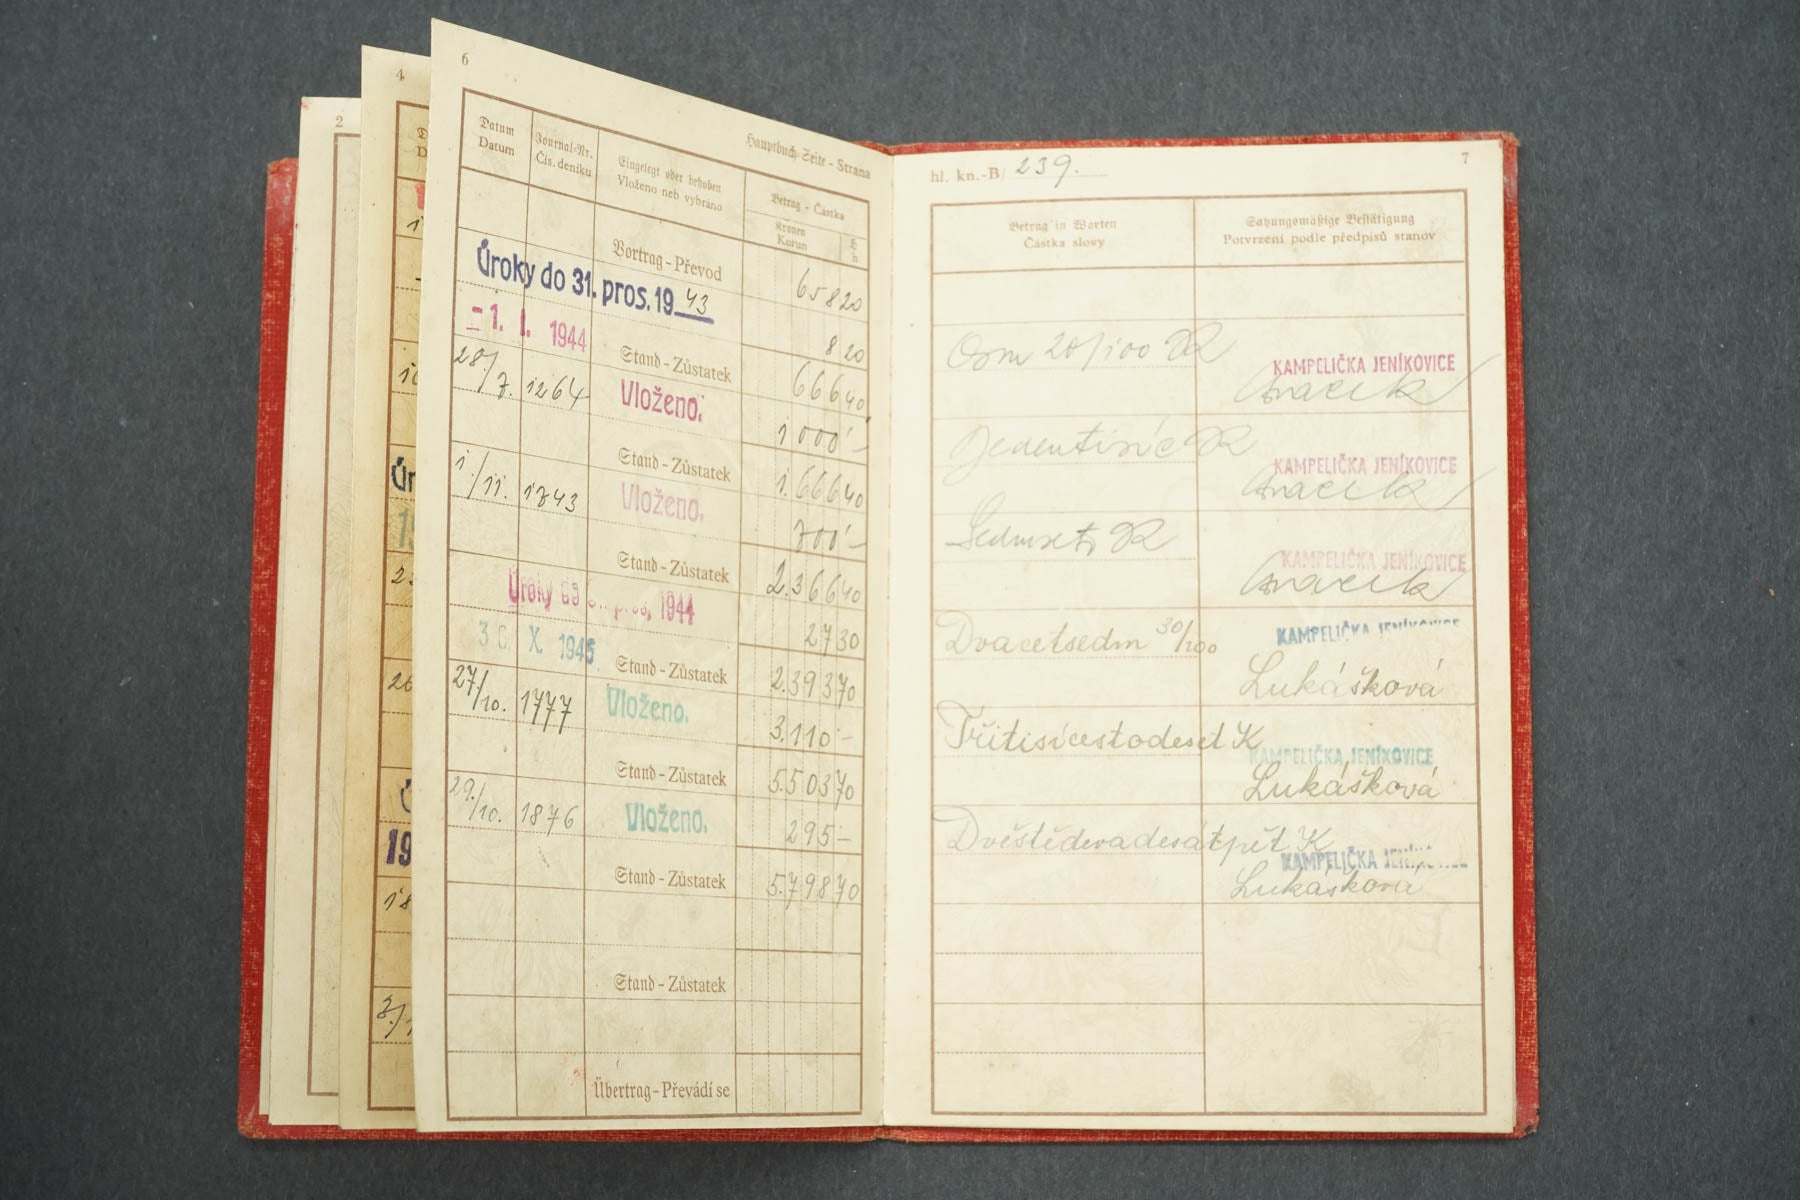 2
4
6
Hauptbuch-Seite - Strana
Datum
Datum
Journal-Nr.
Čís. deníku
Eingelegt oder behoben
Vloženo neb vybráno
Betrag - Částka
Kronen
Korun
h
h
Vortrag - Převod
658 20
Úroky do 31. pros. 19 43
8 20
- 1. I. 1944
Stand - Zůstatek
666 40
28/7. 1264 Vloženo.
1000'-
Stand - Zůstatek
1.666 40
1./11. 1743 Vloženo.
700'-
Stand - Zůstatek
2.366 40
Úroky pros, 1944
27 30
X. 1945
Stand - Zůstatek
2.393 70
27/10. 1777 Vloženo.
3.110 -
Stand - Zůstatek
5.503 70
29./10. 1876 Vloženo.
295 -
Stand - Zůstatek
5.798 70
Stand - Zůstatek
Übertrag - Převádí se
7
hl. kn.-B/ 239.
Betrag in Worten
Částka slovy
Satzungsmäßige Bestätigung
Potvrzení podle předpisů stanov
Osm 20/100 K
KAMPELIČKA JENÍKOVICE
Jedentisíc K
KAMPELIČKA JENÍKOVICE
Sedmset K
KAMPELIČKA JENÍKOVICE
Dvacetsedm 30/100
KAMPELIČKA JENÍKOVICE
Lukášková
Třitisícestodeset K
KAMPELIČKA JENÍKOVICE
Lukášková
Dvěstědevadesátpět K
KAMPELIČKA
Lukášková